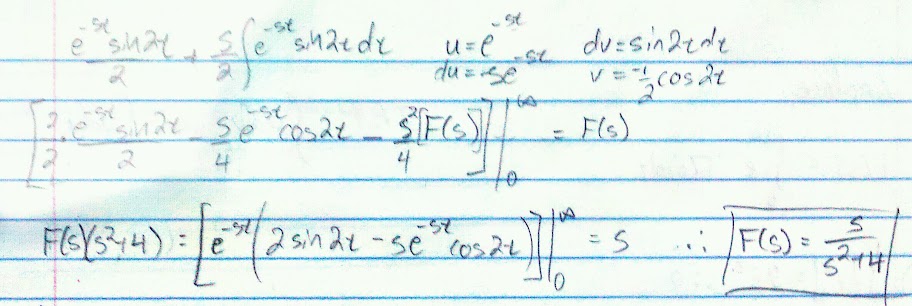 e^{-st} sin2t / 2 + s/2 ∫ e^{-st} sin2t dt    u = e^{-st}    dv = sin2t dt
du = -se^{-st}    v = -1/2 cos2t
[2/2 · e^{-st} sin2t / 2 - s/4 e^{-st} cos2t - s²/4 [F(s)]] |₀^∞ = F(s)
F(s)(s²+4) = [e^{-st} (2 sin2t - se^{-st} cos2t)] |₀^∞ = s    ∴    F(s) = s / s²+4